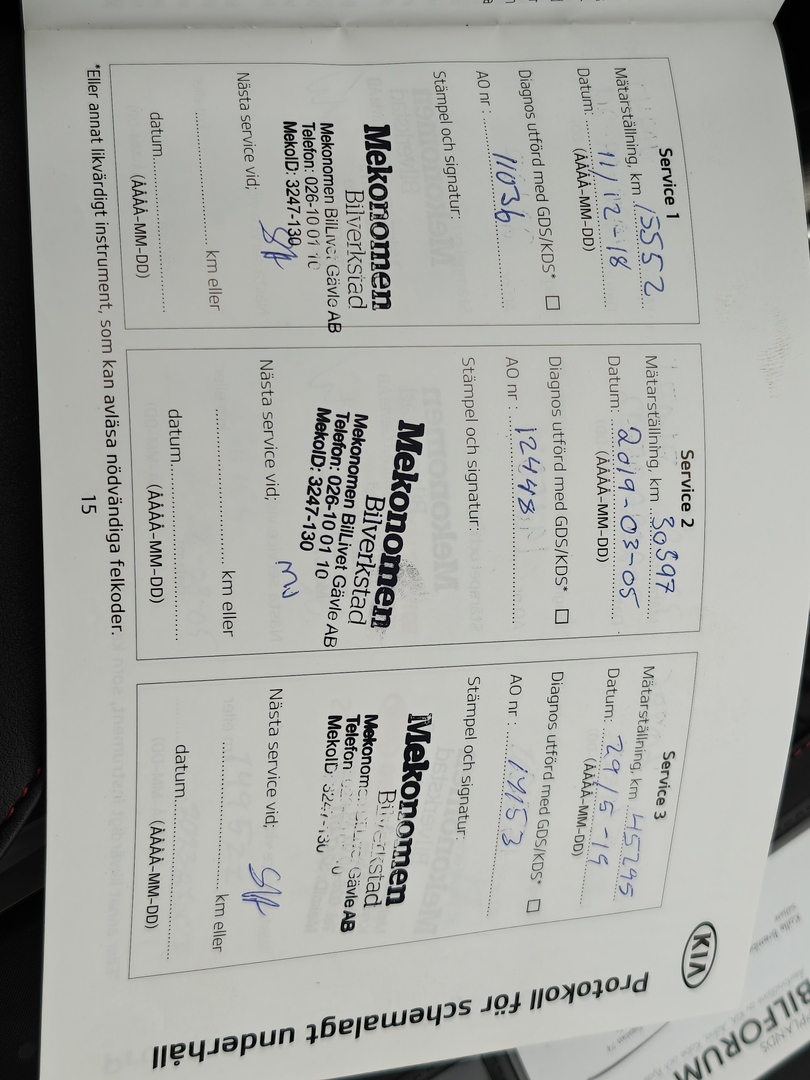 KIA
Protokoll för schemalagt underhåll
Service 1
Mätarställning, km 15552
Datum: 11/12-18
(ÅÅÅÅ-MM-DD)
Diagnos utförd med GDS/KDS*
AO nr: 11036
Stämpel och signatur:
Mekonomen
Bilverkstad
Mekonomen BilLivet Gävle AB
Telefon: 026-10 01 10
MekoID: 3247-130
Nästa service vid;
km eller
datum
(ÅÅÅÅ-MM-DD)
Service 2
Mätarställning, km 30597
Datum: 2019-03-05
(ÅÅÅÅ-MM-DD)
Diagnos utförd med GDS/KDS*
AO nr: 12448
Stämpel och signatur:
Mekonomen
Bilverkstad
Mekonomen BilLivet Gävle AB
Telefon: 026-10 01 10
MekoID: 3247-130
Nästa service vid;
km eller
datum
(ÅÅÅÅ-MM-DD)
Service 3
Mätarställning, km 45295
Datum: 29/5-19
(ÅÅÅÅ-MM-DD)
Diagnos utförd med GDS/KDS*
AO nr: 14153
Stämpel och signatur:
Mekonomen
Bilverkstad
Gävle AB
Telefon
MekoID: 3247-130
Nästa service vid;
km eller
datum
(ÅÅÅÅ-MM-DD)
*Eller annat likvärdigt instrument, som kan avläsa nödvändiga felkoder.
15
BILFORUM